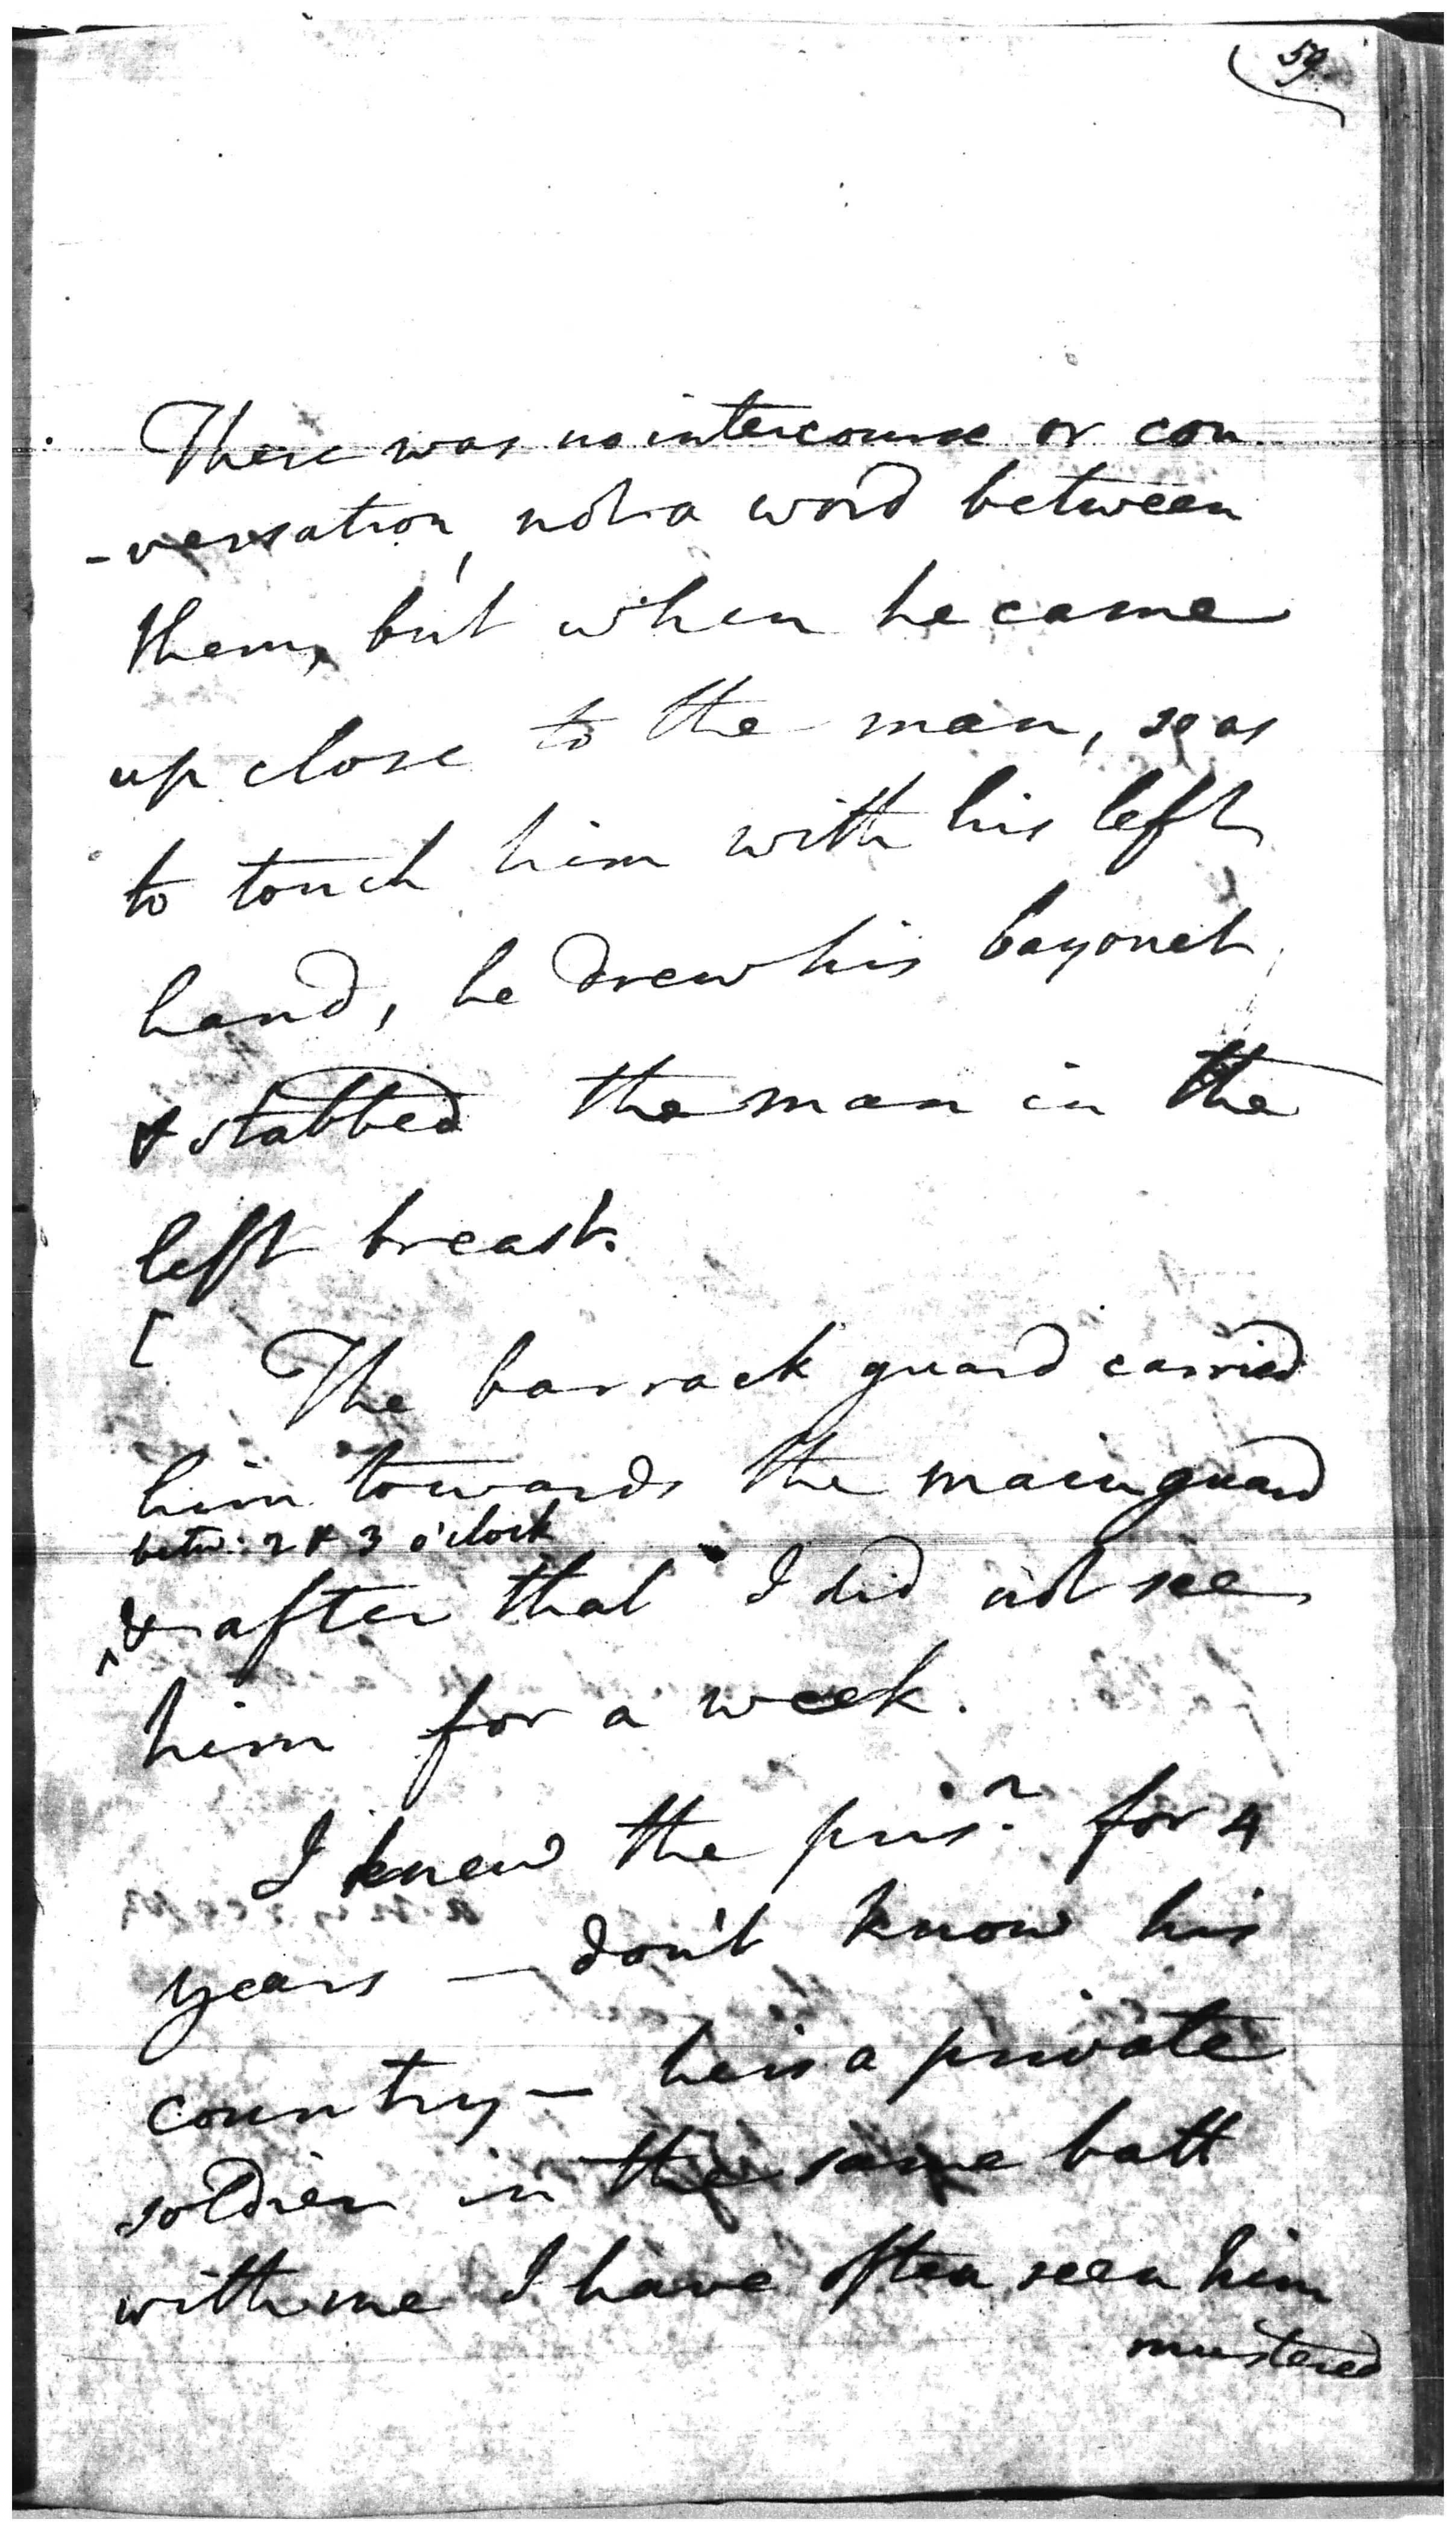 59
There was no intercourse or con
-versation, not a word between
them, but when he came
up close to the man, so as
to touch him with his left
hand, he drew his bayonet
& stabbed the man in the
left breast.
[ The barrack guard carried
him towards the main guard
betw: 2 & 3 o'clock
^ & after that I did not see
him for a week.
I knew the prisr. for 4
years — don't know his
country — he is a private
soldier in the same batt
with me I have often seen him
mustered